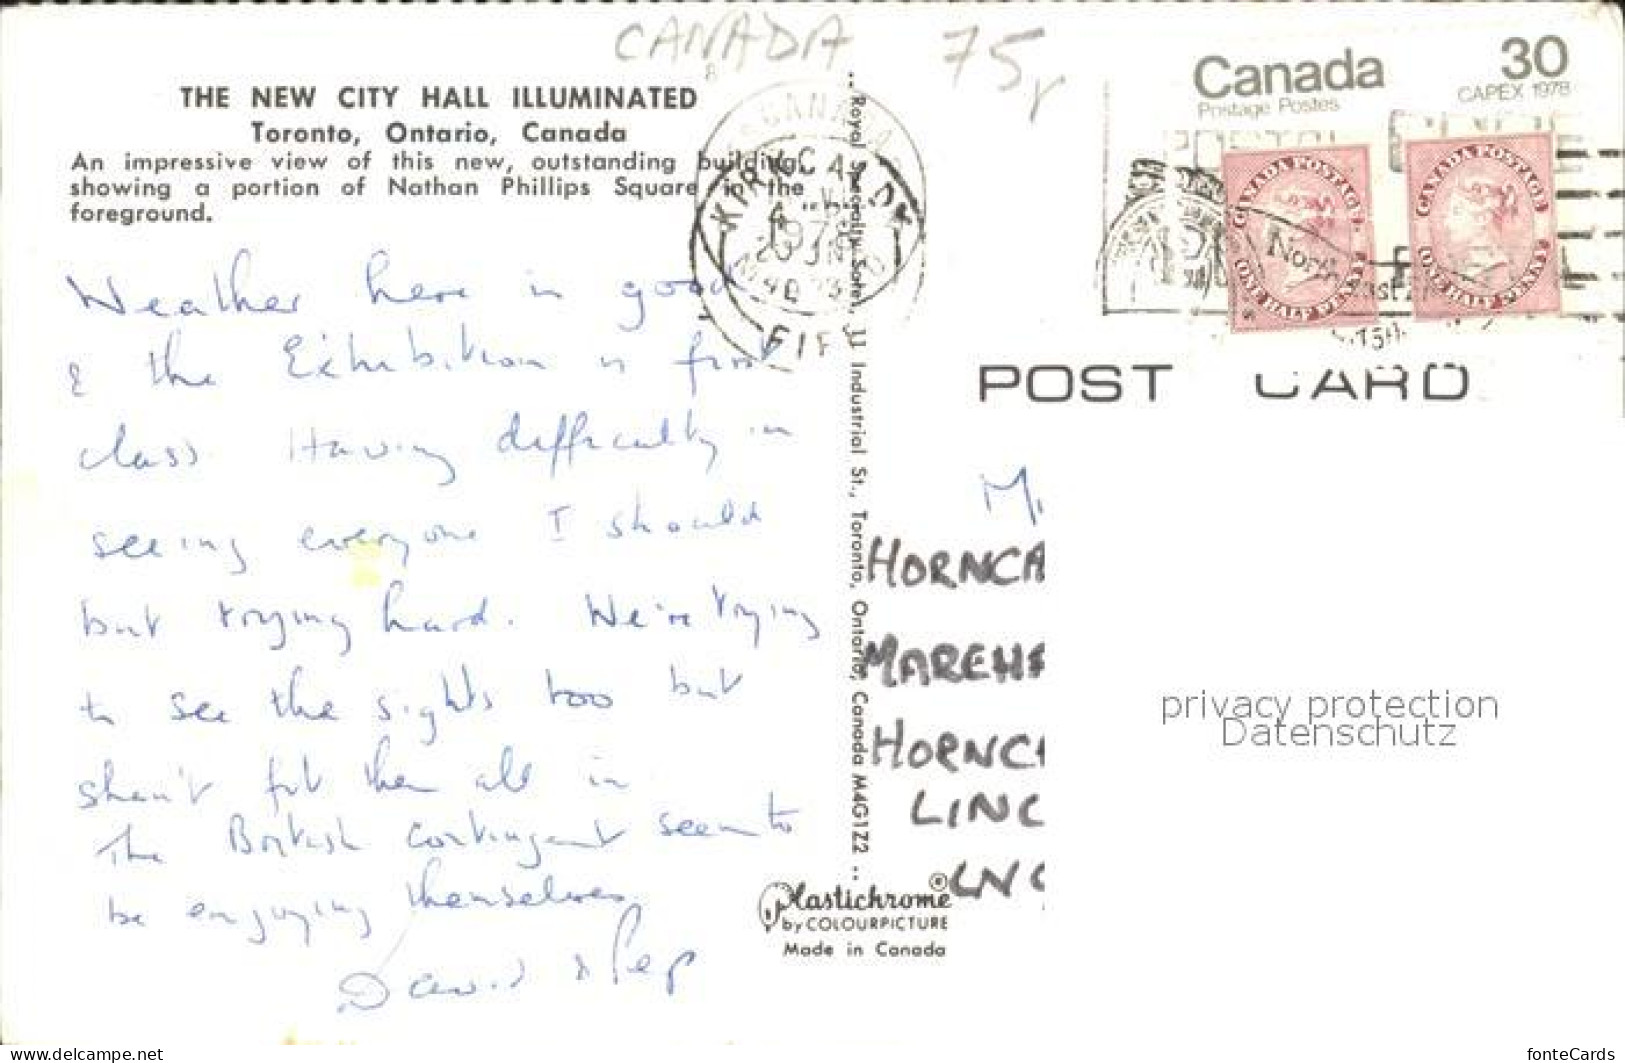 CANADA 75
THE NEW CITY HALL ILLUMINATED
Toronto, Ontario, Canada
An impressive view of this new, outstanding building,
showing a portion of Nathan Phillips Square in the
foreground.
Weather here is good
& the Exhibition is first
class Having difficulty in
seeing everyone I should
but trying hard. We're trying
to see the sights too but
shan't fit them all in
The British contingent seem to
be enjoying themselves
David & Pep
KIRKCALDY
FIFE
.. Royal Specialty Sales, 11 Industrial St., Toronto, Ontario, Canada M4G1Z2 ..
Plastichrome®
by COLOURPICTURE
Made in Canada
Canada 30
Postage Postes CAPEX 1978
CANADA POSTAGE.
ONE HALF PENNY
CANADA POSTAGE
ONE HALF PENNY
North
POST CARD
M.
HORNCA
MAREHA
HORNC
LINC
LN
privacy protection
Datenschutz
https://www.delcampe.net
fonteCards